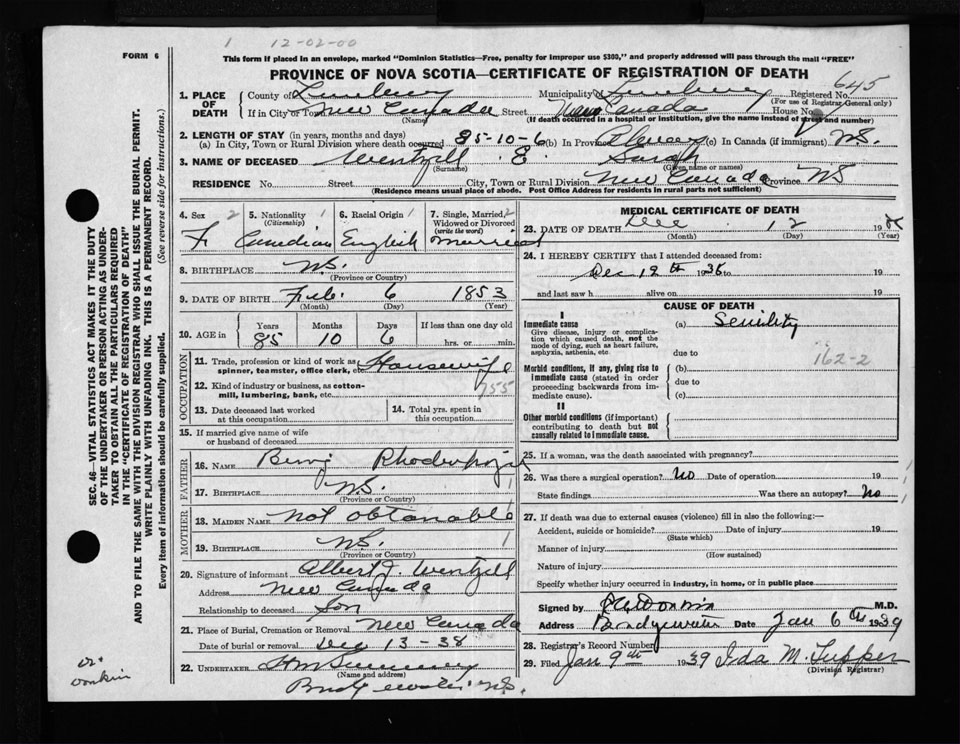 1 12-02-00
FORM 6
This form if placed in an envelope, marked "Dominion Statistics—Free, penalty for improper use $300," and properly addressed will pass through the mail "FREE"
PROVINCE OF NOVA SCOTIA—CERTIFICATE OF REGISTRATION OF DEATH
645
1. PLACE OF DEATH County of Municipality of Registered No.
(For use of Registrar-General only)
If in City or Town New Canada Street New Canada House No.
(Name) (If death occurred in a hospital or institution, give the name instead of street and number)
2. LENGTH OF STAY (in years, months and days)
(a) In City, Town or Rural Division where death occurred 85-10-6 (b) In Province (c) In Canada (if immigrant) N.S.
3. NAME OF DECEASED Wentzell E. Sarah
(Surname) (Given name or names)
RESIDENCE No. Street City, Town or Rural Division New Canada Province NS
(Residence means usual place of abode. Post Office Address for residents in rural parts not sufficient)
SEC. 46—VITAL STATISTICS ACT MAKES IT THE DUTY
OF THE UNDERTAKER OR PERSON ACTING AS UNDER-
TAKER TO OBTAIN ALL THE PARTICULARS REQUIRED
IN THE "CERTIFICATE OF REGISTRATION OF DEATH"
AND TO FILE THE SAME WITH THE DIVISION REGISTRAR WHO SHALL ISSUE THE BURIAL PERMIT.
WRITE PLAINLY WITH UNFADING INK. THIS IS A PERMANENT RECORD.
Every item of information should be carefully supplied. (See reverse side for instructions.)
4. Sex 2 5. Nationality 1 6. Racial Origin 1 7. Single, Married, 2
(Citizenship) Widowed or Divorced
(write the word)
F. Canadian English married
8. BIRTHPLACE N.S.
(Province or Country)
9. DATE OF BIRTH Feb. 6 1853
(Month) (Day) (Year)
10. AGE in Years Months Days If less than one day old
85 10 6 hrs. or min.
OCCUPATION
11. Trade, profession or kind of work as Housewife
spinner, teamster, office clerk, etc.
12. Kind of industry or business, as cotton- 955
mill, lumbering, bank, etc.
13. Date deceased last worked at this occupation
14. Total yrs. spent in this occupation
15. If married give name of wife
or husband of deceased
FATHER
16. NAME Benj
17. BIRTHPLACE N.S. 1
(Province or Country)
MOTHER
18. MAIDEN NAME Not obtanable
19. BIRTHPLACE N.S. 1
(Province or Country)
20. Signature of informant Albert J. Wentzell
Address New Canada
Relationship to deceased Son
21. Place of Burial, Cremation or Removal New Canada
Date of burial or removal Dec 13-38
22. UNDERTAKER
(Name and address)
Bridgewater N.S.
Dr. Donkin
MEDICAL CERTIFICATE OF DEATH
23. DATE OF DEATH Dec. 12 19
(Month) (Day) (Year)
24. I HEREBY CERTIFY that I attended deceased from:
Dec 12th 1938 to 19
and last saw h alive on 19
CAUSE OF DEATH
I
Immediate cause (a) Senility
Give disease, injury or complica-
tion which caused death, not the
mode of dying, such as heart failure,
asphyxia, asthenia, etc.
due to
162-2
Morbid conditions, if any, giving rise to (b)
immediate cause (stated in order due to
proceeding backwards from im-
mediate cause). (c)
II
Other morbid conditions (if important)
contributing to death but not
causally related to immediate cause.
25. If a woman, was the death associated with pregnancy?
26. Was there a surgical operation? No Date of operation 19 1
State findings Was there an autopsy? No 1
27. If death was due to external causes (violence) fill in also the following:—
Accident, suicide or homicide? Date of injury 19
(State which)
Manner of injury
(How sustained)
Nature of injury
Specify whether injury occurred in industry, in home, or in public place
Signed by Donkin M.D.
Address Bridgewater Date Jan 6th 1939
28. Registrar's Record Number
29. Filed Jan 9th 1939 Ida M. Tupper
(Division Registrar)